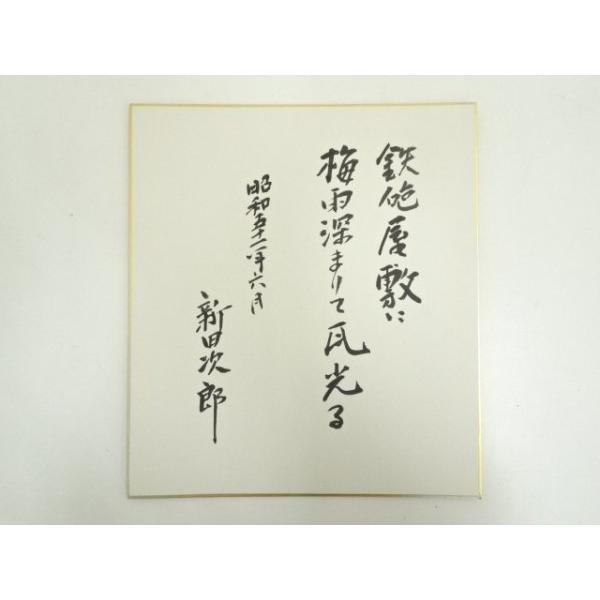 鉄砲屋敷に
梅雨深まりて瓦光る
昭和五十二年六月
新田次郎